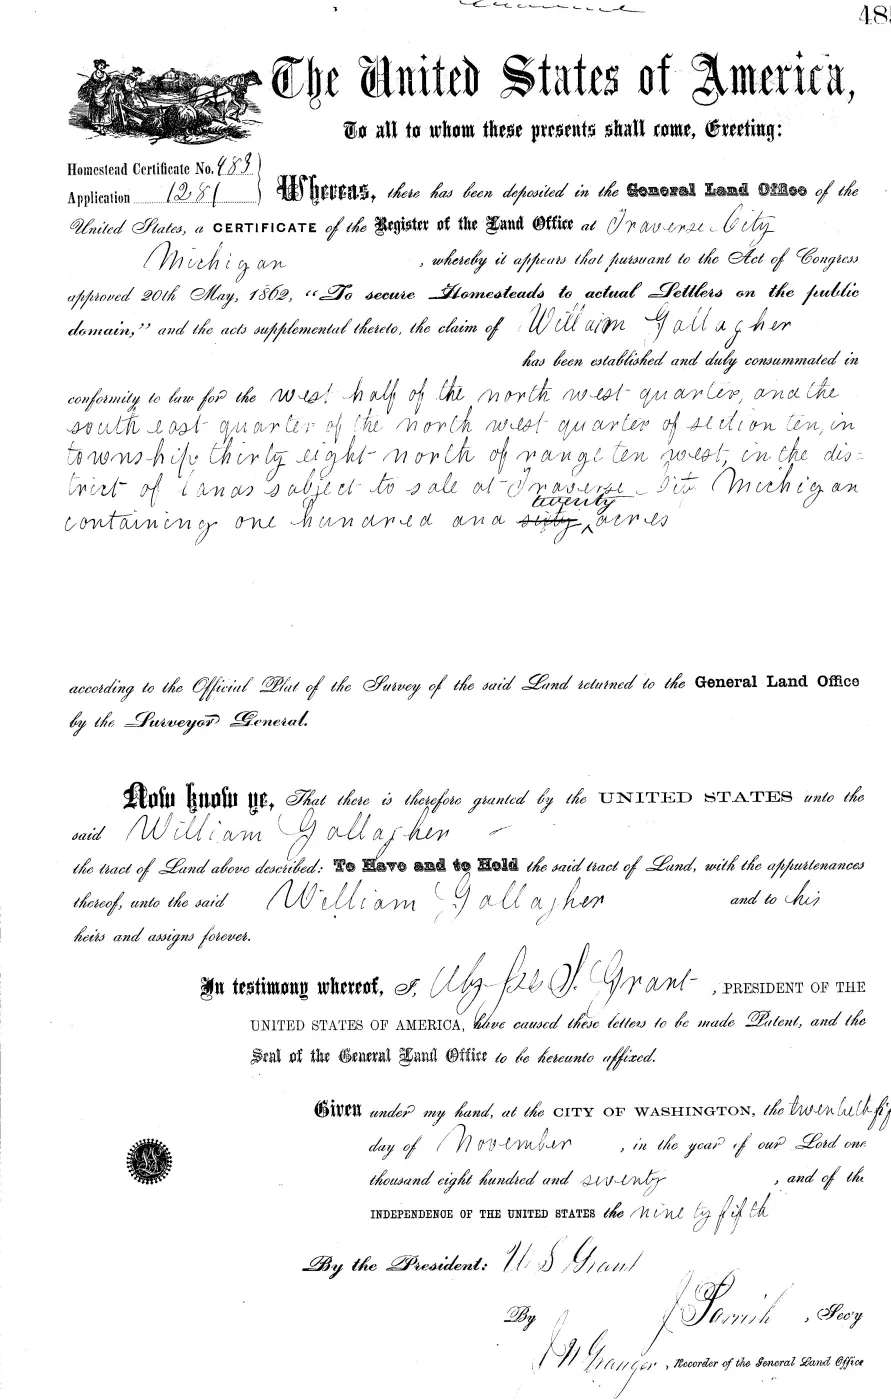 48
The United States of America,
To all to whom these presents shall come, Greeting:
Homestead Certificate No. 483
Application 1281
Whereas, there has been deposited in the General Land Office of the
United States, a CERTIFICATE of the Register of the Land Office at Traverse City
Michigan , whereby it appears that pursuant to the Act of Congress
approved 20th May, 1862, "To secure Homesteads to actual Settlers on the public
domain," and the acts supplemental thereto, the claim of Willaim Gallagher
has been established and duly consummated in
conformity to law for the west half of the north west quarter, and the
south east quarter of the north west quarter of section ten, in
township thirty eight north of range ten west, in the dis-
trict of lands subject to sale at Traverse City Michigan
twenty
containing one hundred and sixty acres
according to the Official Plat of the Survey of the said Land returned to the General Land Office
by the Surveyor General.
Now know ye, That there is therefore granted by the UNITED STATES unto the
said William Gallagher
the tract of Land above described: To Have and to Hold the said tract of Land, with the appurtenances
thereof, unto the said William Gallagher and to his
heirs and assigns forever.
In testimony whereof, I, Ulysses S. Grant , PRESIDENT OF THE
UNITED STATES OF AMERICA, have caused these letters to be made Patent, and the
Seal of the General Land Office to be hereunto affixed.
Given under my hand, at the CITY OF WASHINGTON, the twenty fif
day of November , in the year of our Lord one
thousand eight hundred and seventy , and of the
INDEPENDENCE OF THE UNITED STATES the ninety fifth
By the President: U S Grant
By J Parrish , Secy
J N Granger , Recorder of the General Land Office